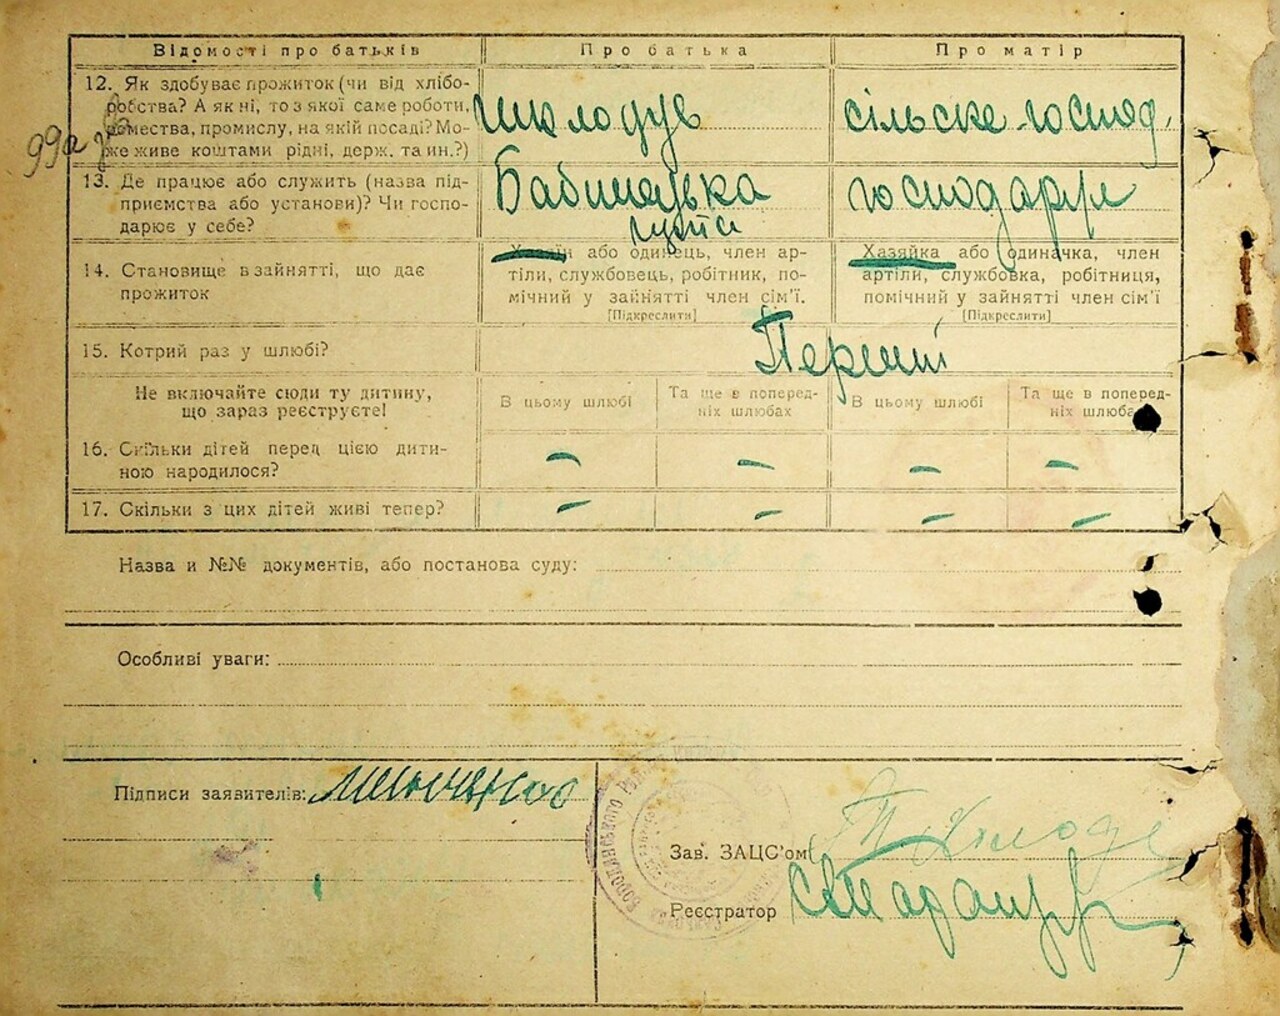 Відомості про батьків
Про батька
Про матір
99а
12. Як здобуває прожиток (чи від хлібо-
робства? А як ні, то з якої саме роботи,
ремества, промислу, на якій посаді? Мо-
же живе коштами рідні, держ. та ин.?)
сільске-господ.
13. Де працює або служить (назва під-
приємства або установи)? Чи госпо-
дарює у себе?
14. Становище в зайнятті, що дає
прожиток
Хазяїн або одинець, член ар-
тіли, службовець, робітник, по-
мічний у зайнятті член сім'ї.
[Підкреслити]
Хазяйка або одиначка, член
артіли, службовка, робітниця,
помічний у зайнятті член сім'ї
[Підкреслити]
15. Котрий раз у шлюбі?
Перший
Не включайте сюди ту дитину,
що зараз реєструєте!
В цьому шлюбі
Та ще в поперед-
ніх шлюбах
В цьому шлюбі
Та ще в поперед-
ніх шлюбах
16. Скільки дітей перед цією дити-
ною народилося?
– – – –
17. Скільки з цих дітей живі тепер?
– – – –
Назва и №№ документів, або постанова суду:
Особливі уваги:
Підписи заявителів:
Зав. ЗАЦС'ом
Реєстратор